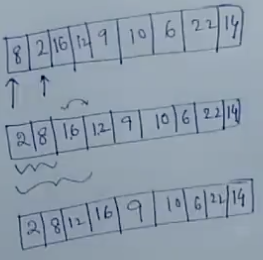 8 2 16 12 9 10 6 22 14
2 8 16 12 9 10 6 22 14
2 8 12 16 9 10 6 22 14